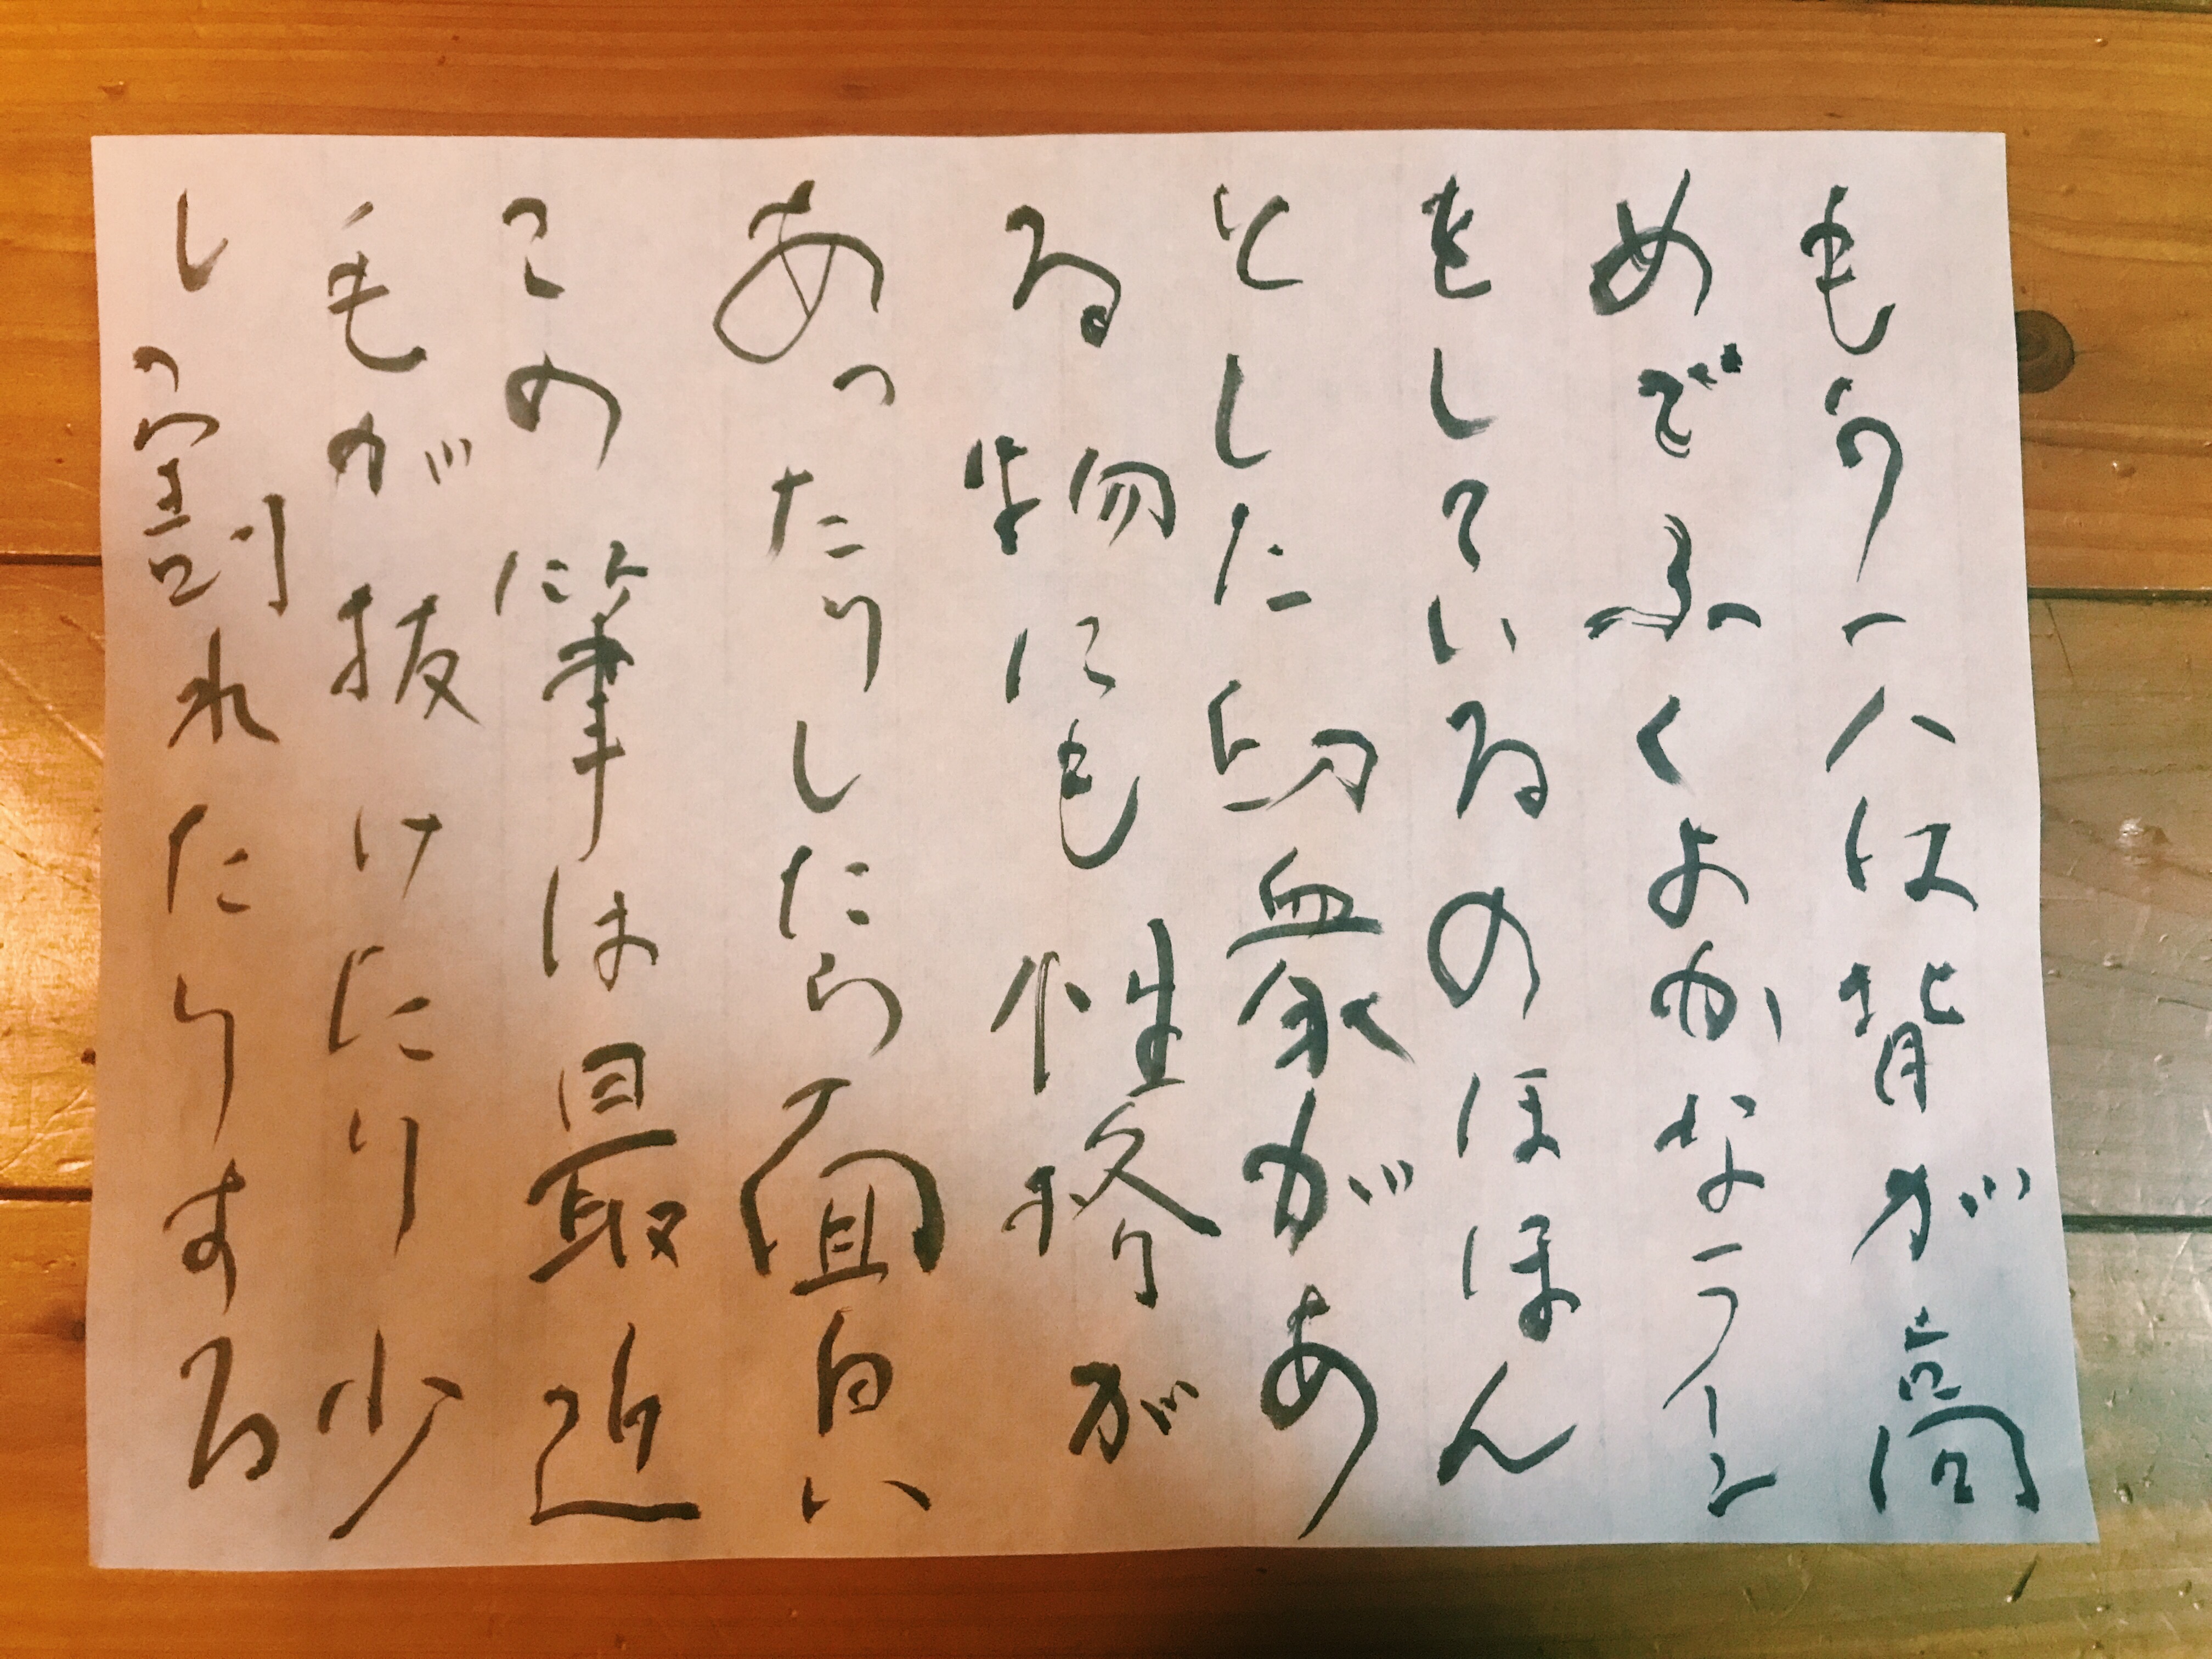 もう一人は背が高
めでふくよかなライン
をしているのほほん
とした印象があ
る物にも性格が
あったりしたら面白い
この筆は最近
毛が抜けたり少
し割れたりする